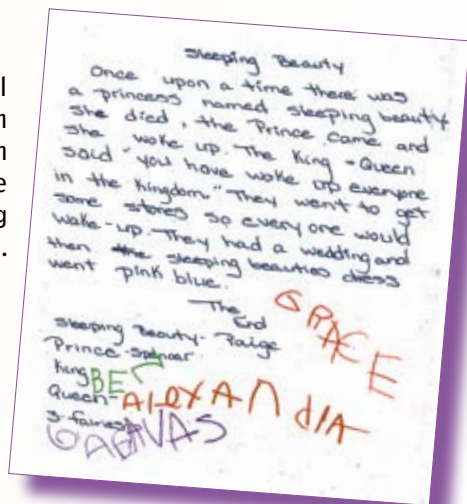 l
n
n
e
g
.
Sleeping Beauty
Once upon a time there was
a princess named sleeping beauty
she died, the Prince came and
she woke up. The King - Queen
said "you have woke up everyone
in the kingdom." They went to get
some stores so every one would
wake-up. They had a wedding and
then the sleeping beauties dress
went pink blue.
The
End
GRACE
Sleeping Beauty- Paige
Prince-Spencer
King BE
Queen-AlexANdIA
3-fairies